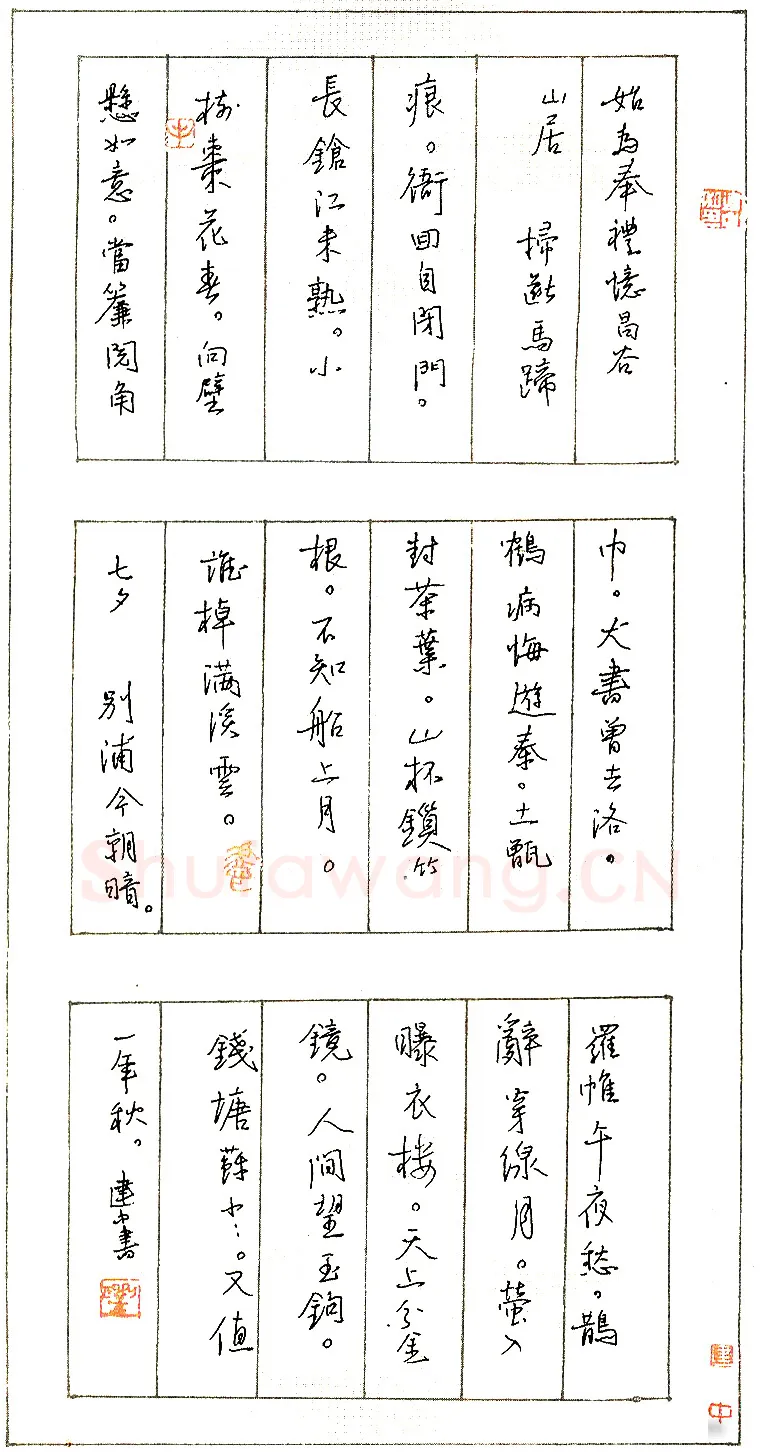 始為奉禮憶昌谷
山居 掃斷馬蹄
痕。衙回自閉門。
長鎗江米熟。小
樹棗花春。向壁
懸如意。當簾閱角
巾。犬書曾去洛。
鶴病悔遊秦。土甑
封茶葉。山杯鎖竹
根。不知船上月。
誰棹滿溪雲。
七夕 別浦今朝暗。
羅帷午夜愁。鵲
辭穿線月。螢入
曝衣楼。天上分金
鏡。人間望玉鉤。
錢塘蘇小〻。又值
一年秋。建中書
Shufawang.CN